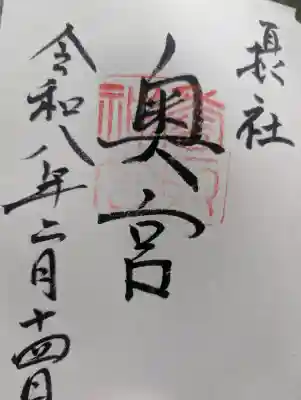 摂社
奥宮
令和八年二月十四日